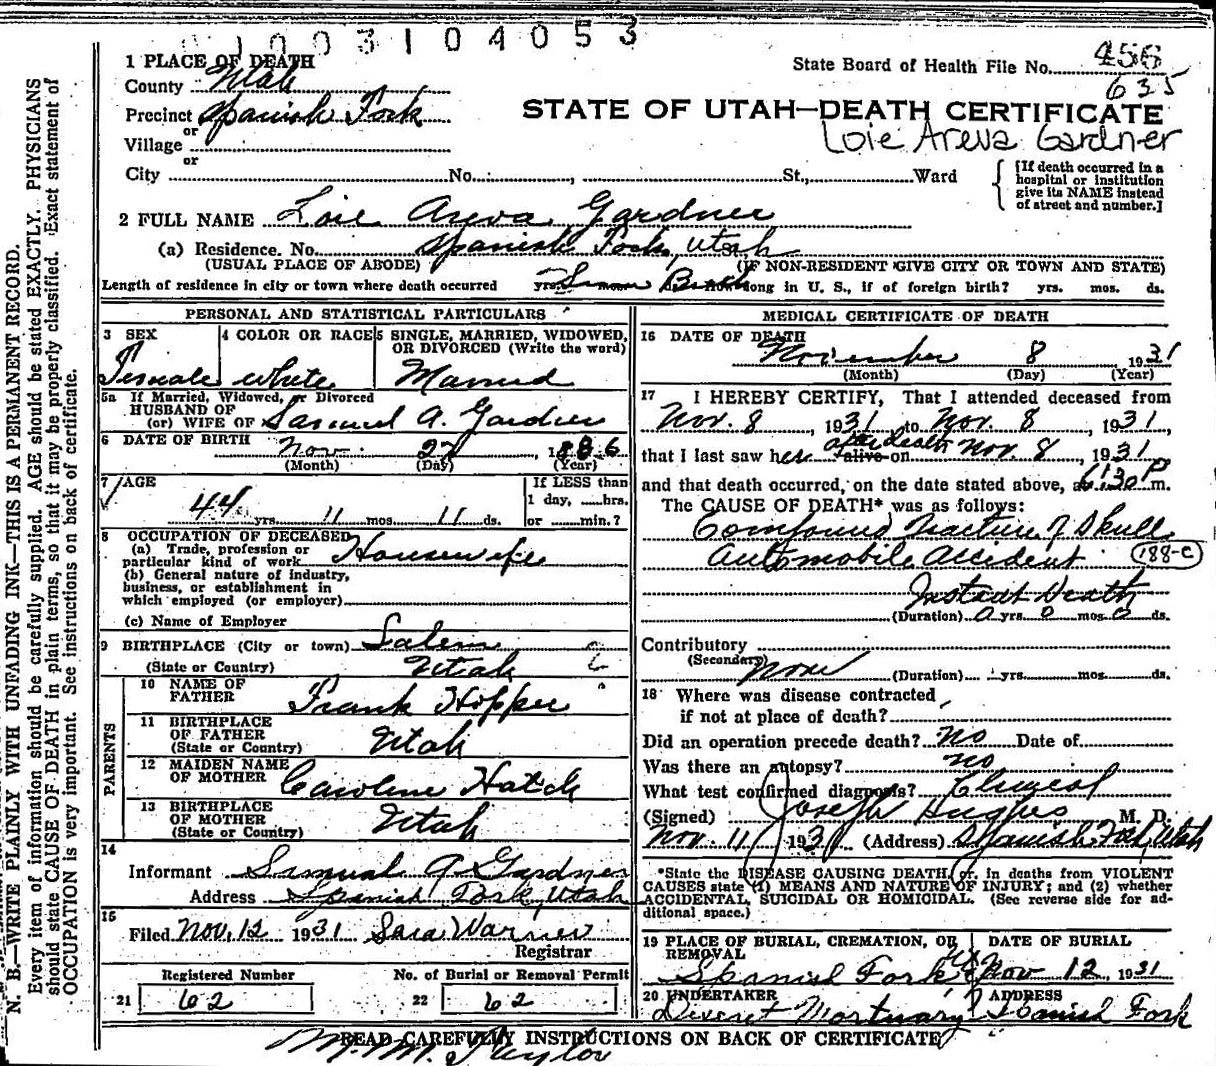 1003104053
1 PLACE OF DEATH
County Utah
State Board of Health File No. 456
635
Precinct Spanish Fork
or
Village
or
STATE OF UTAH—DEATH CERTIFICATE
Loie Areva Gardner
City No. , St., Ward
[If death occurred in a hospital or institution give its NAME instead of street and number.]
2 FULL NAME Loie Areva Gardner
(a) Residence. No. Spanish Fork, Utah
(USUAL PLACE OF ABODE) (IF NON-RESIDENT GIVE CITY OR TOWN AND STATE)
Length of residence in city or town where death occurred yrs. Since Birth long in U. S., if of foreign birth? yrs. mos. ds.
PERSONAL AND STATISTICAL PARTICULARS
3 SEX
Female
4 COLOR OR RACE
white
5 SINGLE, MARRIED, WIDOWED, OR DIVORCED (Write the word)
Married
5a If Married, Widowed, or Divorced
HUSBAND OF
(or) WIFE OF Samuel A. Gardner
6 DATE OF BIRTH Nov. 27, 1886
(Month) (Day) (Year)
7 AGE
44 yrs. 11 mos. 11 ds.
If LESS than
1 day, hrs.
or min.?
8 OCCUPATION OF DECEASED
(a) Trade, profession or
particular kind of work Housewife
(b) General nature of industry,
business, or establishment in
which employed (or employer)
(c) Name of Employer
9 BIRTHPLACE (City or town) Salem
(State or Country) Utah
PARENTS
10 NAME OF
FATHER Frank Hopper
11 BIRTHPLACE
OF FATHER
(State or Country) Utah
12 MAIDEN NAME
OF MOTHER Caroline Hatch
13 BIRTHPLACE
OF MOTHER
(State or Country) Utah
14
Informant Samuel A. Gardner
Address Spanish Fork, Utah
15
Filed Nov. 12 1931 Sara Warner
Registrar
Registered Number No. of Burial or Removal Permit
21 62 22 62
MEDICAL CERTIFICATE OF DEATH
16 DATE OF DEATH
November 8 1931
(Month) (Day) (Year)
17 I HEREBY CERTIFY, That I attended deceased from
Nov. 8, 1931 to Nov. 8, 1931,
that I last saw her alive on after death Nov. 8, 1931
and that death occurred, on the date stated above, at 6:30 P m.
The CAUSE OF DEATH* was as follows:
Compound Fracture of Skull
Automobile Accident 188-c
Instant Death
(Duration) 0 yrs. 0 mos. 0 ds.
Contributory
(Secondary) None (Duration) yrs. mos. ds.
18 Where was disease contracted,
if not at place of death?
Did an operation precede death? No Date of
Was there an autopsy? no
What test confirmed diagnosis? Clinical
(Signed) Joseph Hughes M. D.
Nov. 11, 1931 (Address) Spanish Fork, Utah
*State the DISEASE CAUSING DEATH, or, in deaths from VIOLENT
CAUSES state (1) MEANS AND NATURE OF INJURY; and (2) whether
ACCIDENTAL, SUICIDAL OR HOMICIDAL. (See reverse side for ad-
ditional space.)
19 PLACE OF BURIAL, CREMATION, OR
REMOVAL
Spanish Fork
DATE OF BURIAL
Nov 12, 1931
20 UNDERTAKER
Deseret Mortuary
ADDRESS
Spanish Fork
READ CAREFULLY INSTRUCTIONS ON BACK OF CERTIFICATE
M. M. Taylor
N. B.—WRITE PLAINLY WITH UNFADING INK—THIS IS A PERMANENT RECORD.
Every item of information should be carefully supplied. AGE should be stated EXACTLY. PHYSICIANS
should state CAUSE OF DEATH in plain terms, so that it may be properly classified. Exact statement of
OCCUPATION is very important. See instructions on back of certificate.